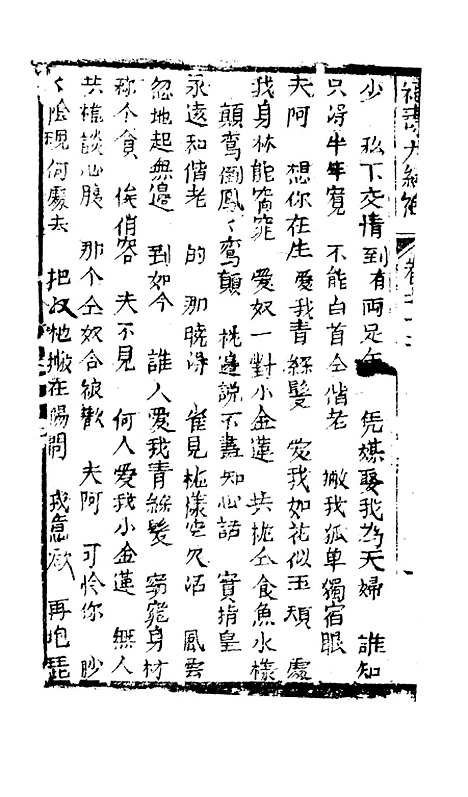 少 私下交情到有両足年 凭媒娶我為夫婦 誰知
只得半年寬 不能白首仝偕老 撇我孤单獨宿眼
夫阿 想你在生愛我青絲髮 愛我如花似玉 處
我身林能窈窕 愛奴一對小金蓮 共桃仝食魚水樣
顛鸾倒鳳〻鸾顛 枕邊說不盡知心話 實指皇
永遠和偕老 的 那暁得 雀見 樣 欠 風雲
忽地起無邉 到如今 誰人愛我青絲髮 窈窕身材
称个貪 俏容 夫不見 何人爱我小金蓮 無人
共桃談心胨 那个仝奴合彼歡 夫阿 可怜你 眇
〻陰現何處去 把奴抛撇在陽間 我怎 再抱琵